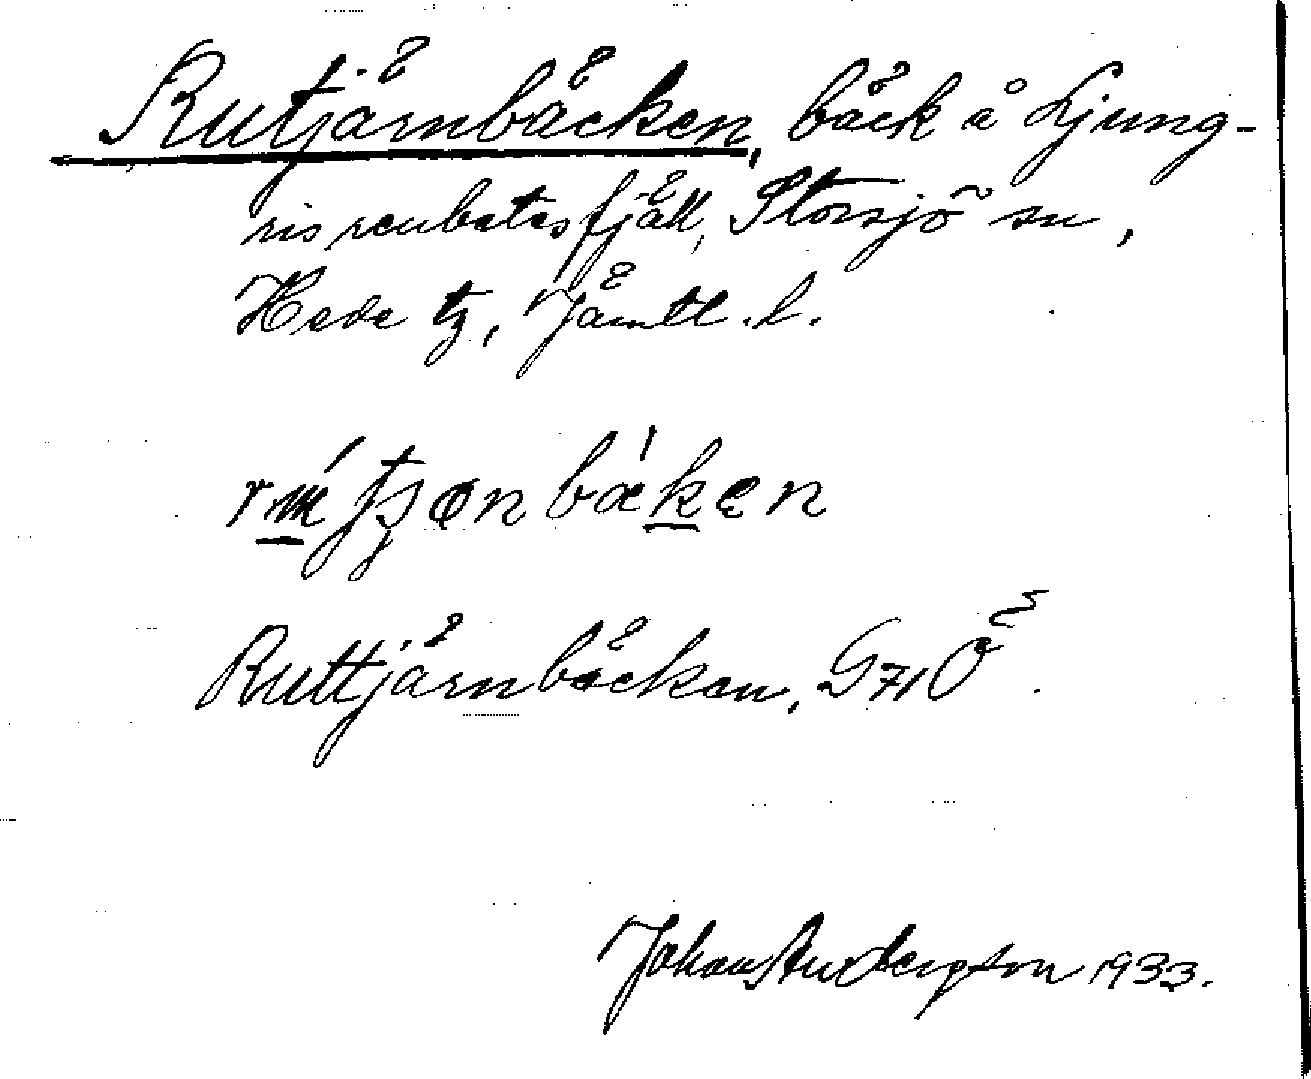 Rutjärnbäcken, bäck å Ljung-
ris renbetesfjäll, Storsjö sn,
Hede tg, Jämtl. l.
bäken
Ruttjärnbäcken, G 71 Ö
Johan Anderzson 1933.